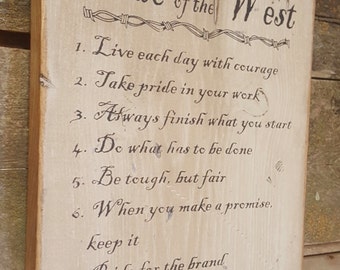 of the West
1. Live each day with courage
2. Take pride in your work
3. Always finish what you start
4. Do what has to be done
5. Be tough, but fair
6. When you make a promise.
keep it
Ride for the brand